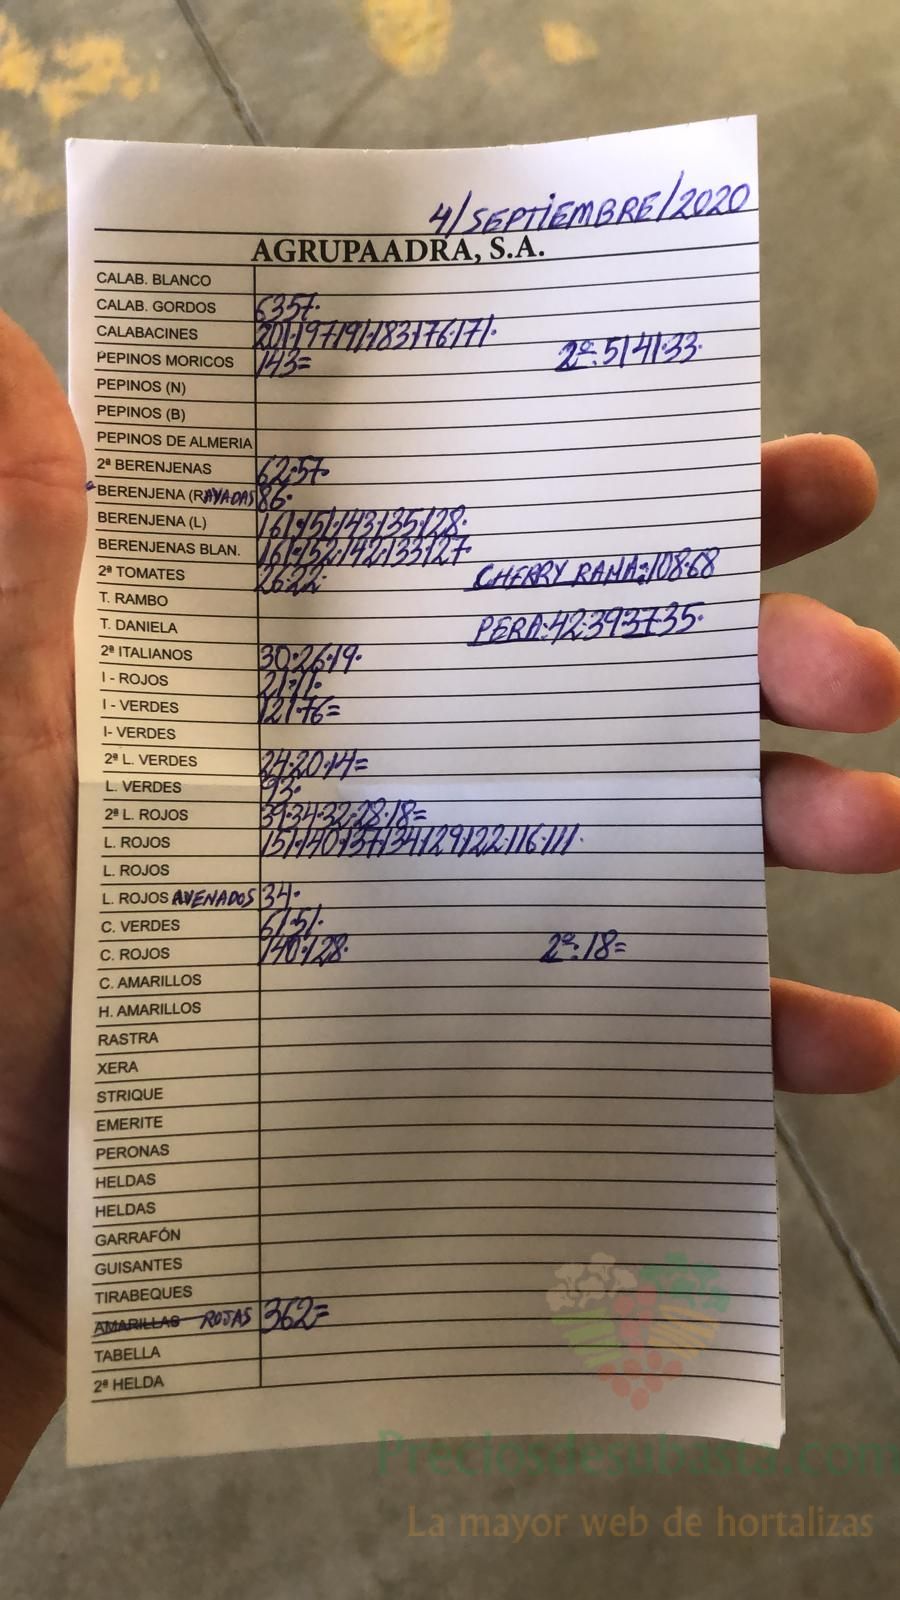 4/SEPTIEMBRE/2020
AGRUPAADRA, S.A.
CALAB. BLANCO
CALAB. GORDOS 63·57·
CALABACINES 201·197·191·183·176·171·
PEPINOS MORICOS 143= 2ª:51·41·33·
PEPINOS (N)
PEPINOS (B)
PEPINOS DE ALMERIA
2ª BERENJENAS 62·57·
BERENJENA (RAYADAS 86·
BERENJENA (L) 161·151·143·135·128·
BERENJENAS BLAN. 161·152·142·133·127·
2ª TOMATES 26·22· CHERRY RAMA:108·68
T. RAMBO
T. DANIELA PERA:42·39·37·35·
2ª ITALIANOS 30·26·19·
I - ROJOS 21·11·
I - VERDES 121·76=
I- VERDES
2ª L. VERDES 24·20·14=
L. VERDES 93·
2ª L. ROJOS 39·34·32·28·18=
L. ROJOS 151·140·137·134·129·122·116·111·
L. ROJOS
L. ROJOS AVENADOS 34·
C. VERDES 61·51·
C. ROJOS 140·128· 2ª:18=
C. AMARILLOS
H. AMARILLOS
RASTRA
XERA
STRIQUE
EMERITE
PERONAS
HELDAS
HELDAS
GARRAFÓN
GUISANTES
TIRABEQUES
AMARILLAS ROJAS 362=
TABELLA
2ª HELDA
Preciosdesubasta.com
La mayor web de hortalizas